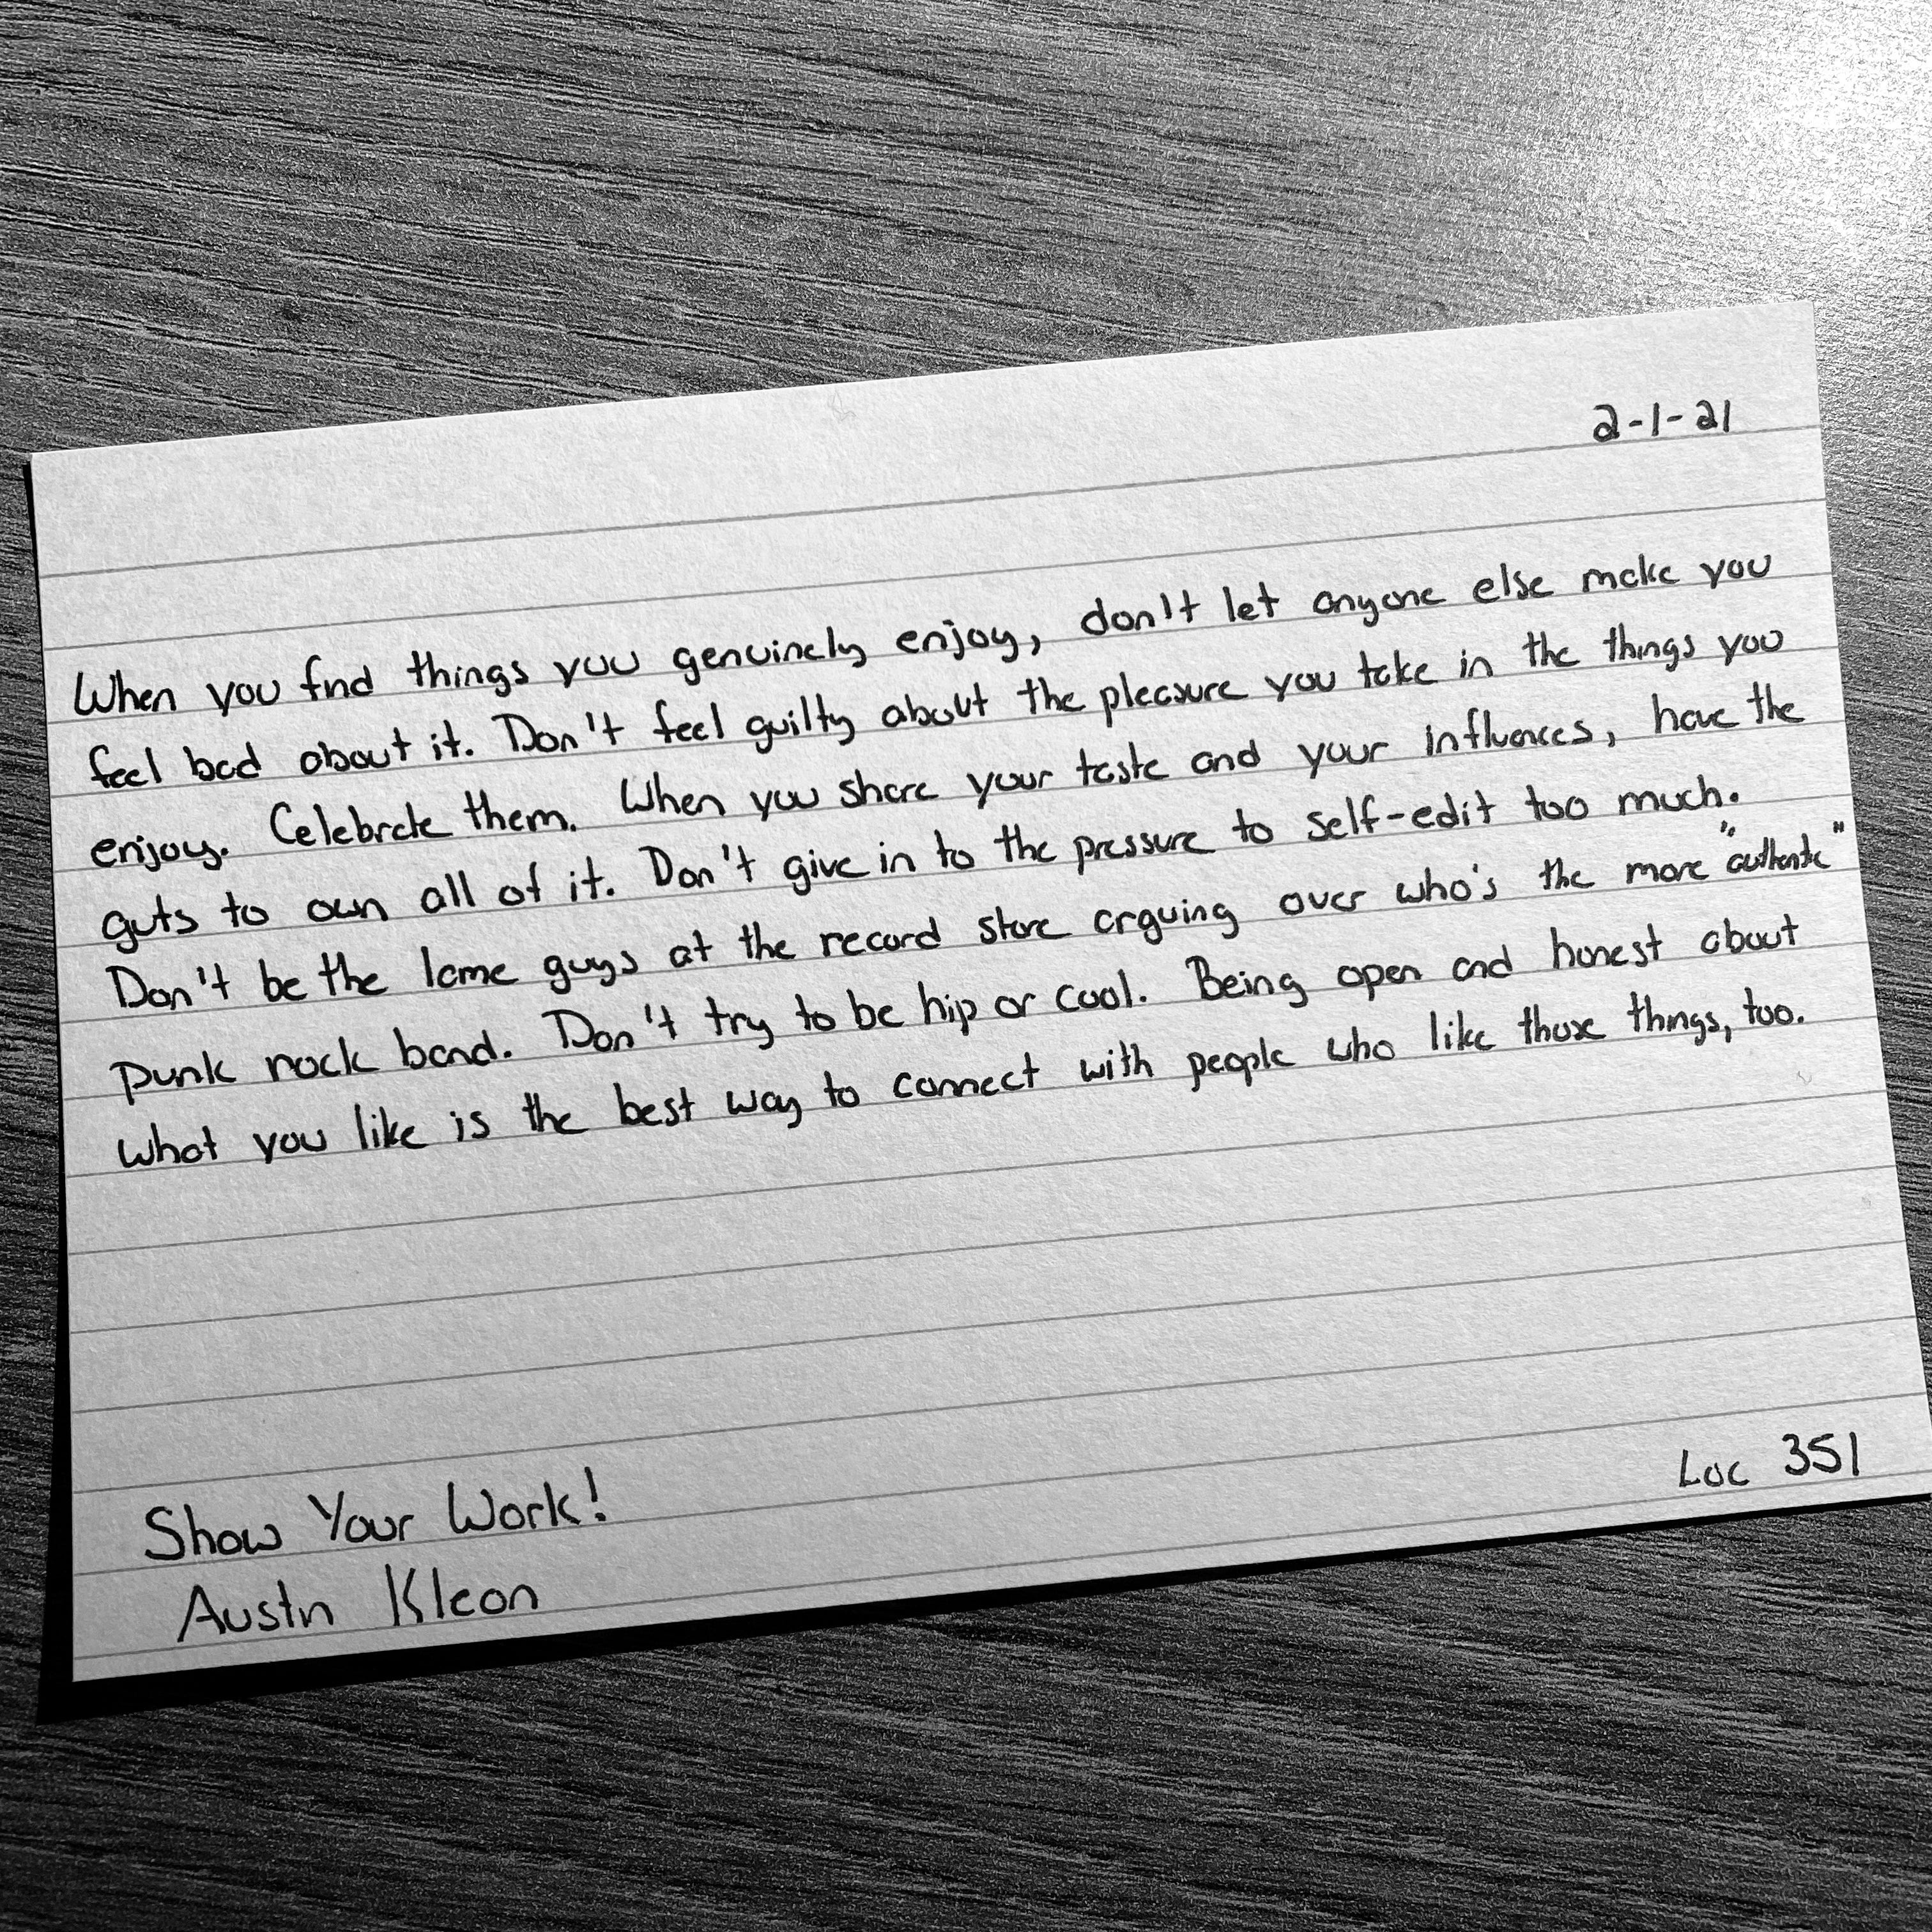 2-1-21
When you find things you genuinely enjoy, don't let anyone else make you
feel bad about it. Don't feel guilty about the pleasure you take in the things you
enjoy. Celebrate them. When you share your taste and your influences, have the
guts to own all of it. Don't give in to the pressure to self-edit too much.
Don't be the lame guys at the record store arguing over who's the more "authentic"
punk rock band. Don't try to be hip or cool. Being open and honest about
what you like is the best way to connect with people who like those things, too.
Show Your Work!
Austin Kleon
Loc 351